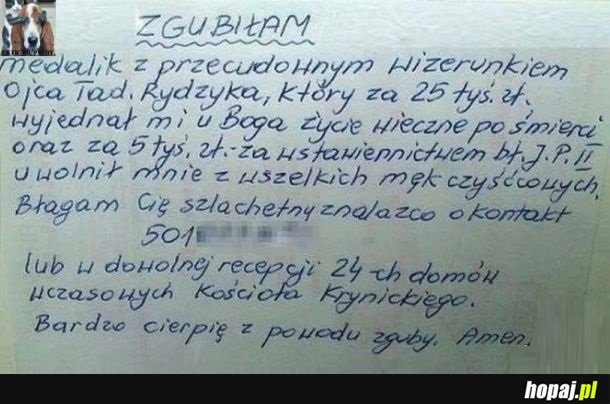 ZGUBIŁAM
medalik z przecudownym wizerunkiem
Ojca Tad. Rydzyka, który za 25 tyś. zł.
wyjednał mi u Boga życie wieczne po śmierci
oraz za 5 tyś. zł. - za wstawiennictwem bł. J. P. II
uwolnił mnie z wszelkich mąk czyśćcowych.
Błagam Cię szlachetny znalazco o kontakt
501
lub w dowolnej recepcji 24-ch domów
wczasowych Kościoła Krynickiego.
Bardzo cierpię z powodu zguby. Amen.
hopaj.pl